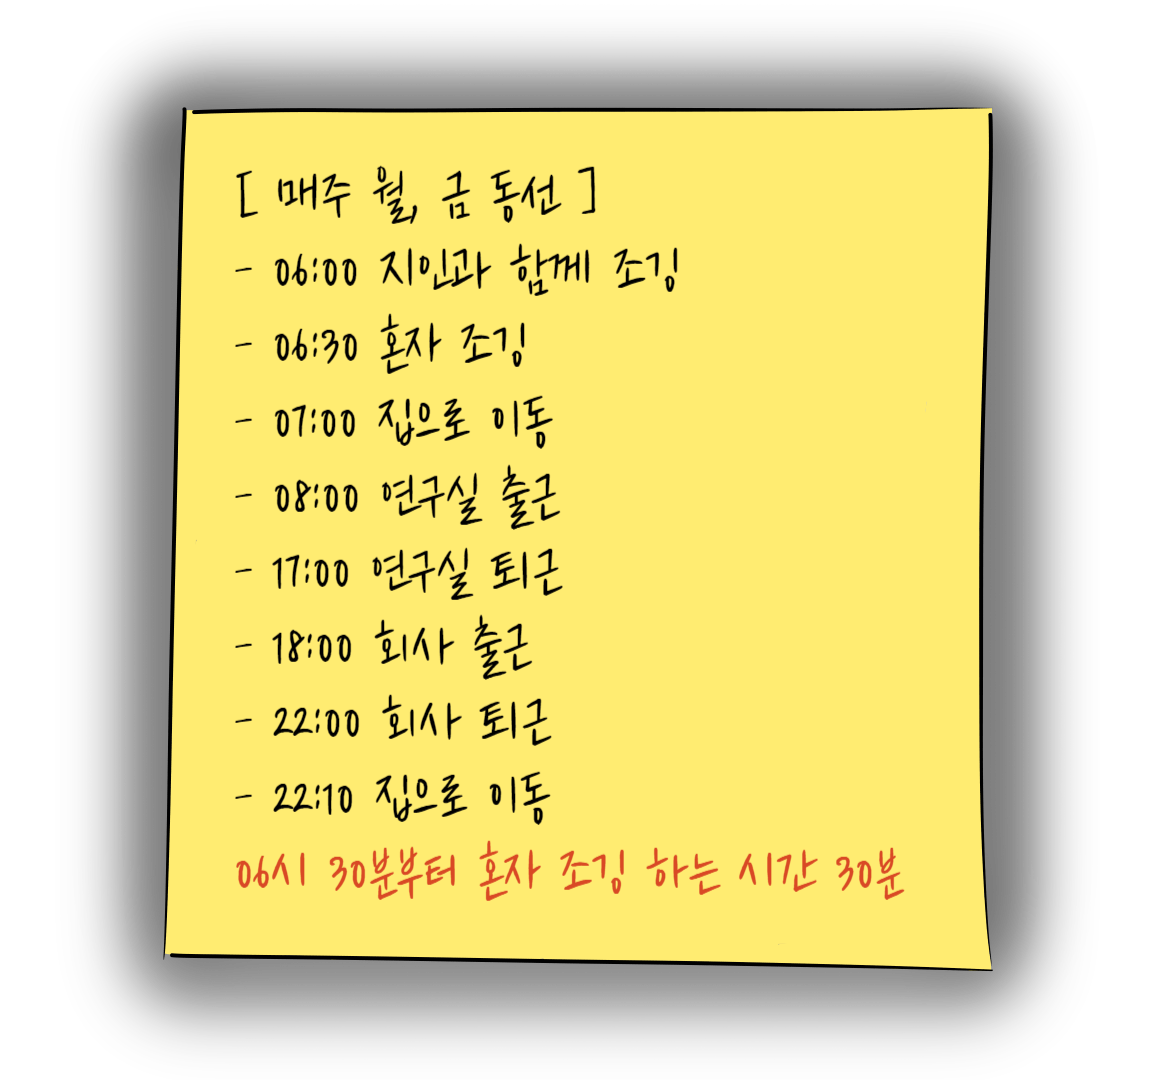 [ 매주 월, 금 동선 ]
- 06:00 지인과 함께 조깅
- 06:30 혼자 조깅
- 07:00 집으로 이동
- 08:00 연구실 출근
- 17:00 연구실 퇴근
- 18:00 회사 출근
- 22:00 회사 퇴근
- 22:10 집으로 이동
06시 30분부터 혼자 조깅 하는 시간 30분